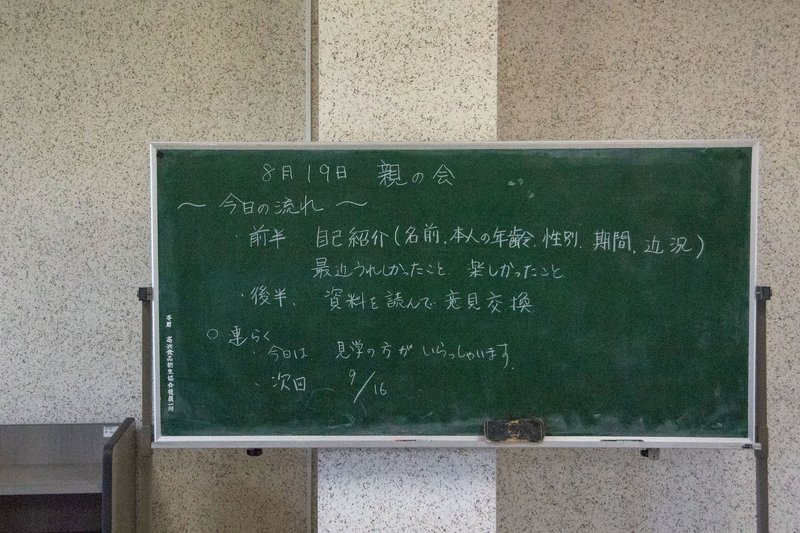 8月19日 親の会
～ 今日の流れ ～
・前半 自己紹介(名前,本人の年齢,性別,期間,近況)
最近うれしかったこと、楽しかったこと
・後半、資料を読んで意見交換
○ 連らく
・今日は 見学の方がいらっしゃいます.
・次回 9/16
寄贈 高岩食品衛生協会役員一同